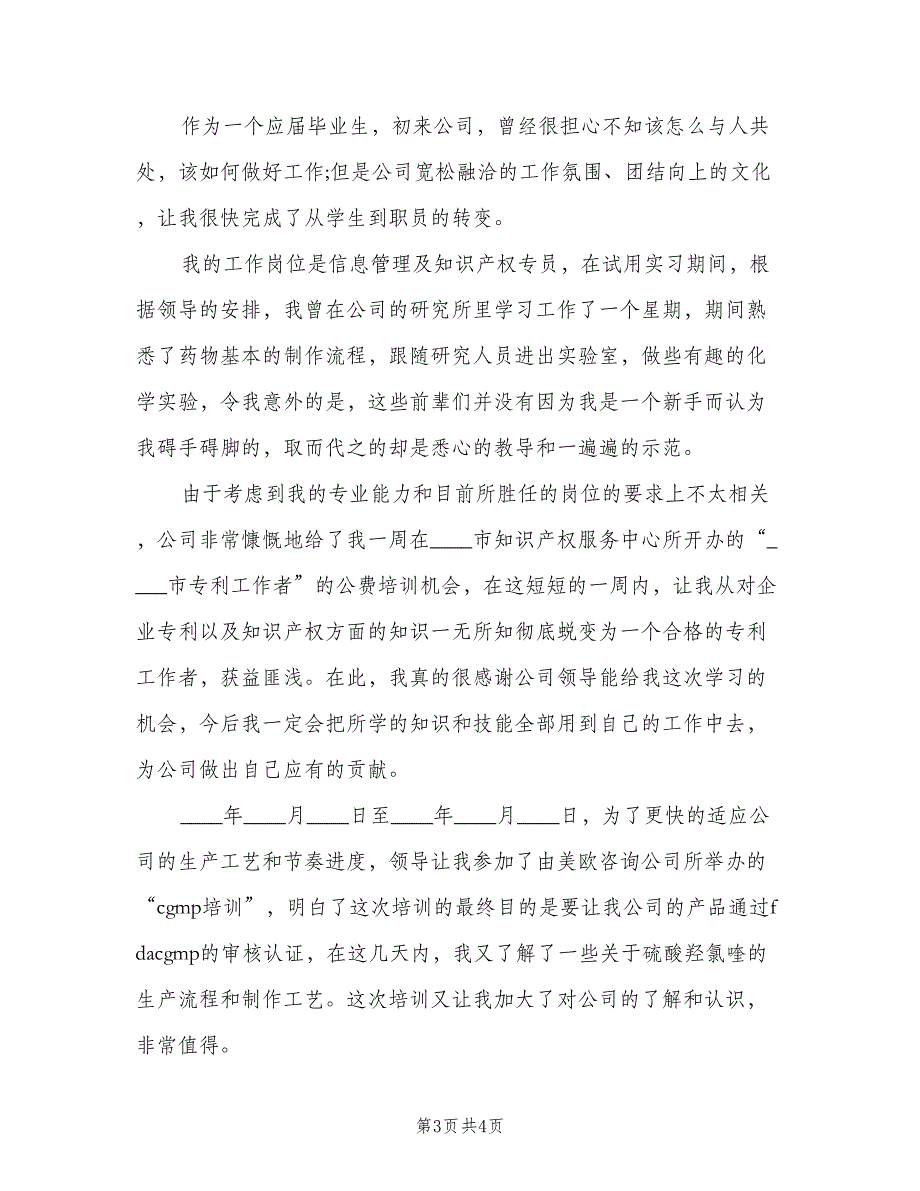 作为一个应届毕业生，初来公司，曾经很担心不知该怎么与人共
处，该如何做好工作;但是公司宽松融洽的工作氛围、团结向上的文化
，让我很快完成了从学生到职员的转变。
我的工作岗位是信息管理及知识产权专员，在试用实习期间，根
据领导的安排，我曾在公司的研究所里学习工作了一个星期，期间熟
悉了药物基本的制作流程，跟随研究人员进出实验室，做些有趣的化
学实验，令我意外的是，这些前辈们并没有因为我是一个新手而认为
我碍手碍脚的，取而代之的却是悉心的教导和一遍遍的示范。
由于考虑到我的专业能力和目前所胜任的岗位的要求上不太相关
，公司非常慷慨地给了我一周在____市知识产权服务中心所开办的“_
___市专利工作者”的公费培训机会，在这短短的一周内，让我从对企
业专利以及知识产权方面的知识一无所知彻底蜕变为一个合格的专利
工作者，获益匪浅。在此，我真的很感谢公司领导能给我这次学习的
机会，今后我一定会把所学的知识和技能全部用到自己的工作中去，
为公司做出自己应有的贡献。
____年____月____日至____年____月____日，为了更快的适应公
司的生产工艺和节奏进度，领导让我参加了由美欧咨询公司所举办的
“cgmp培训”，明白了这次培训的最终目的是要让我公司的产品通过f
dacgmp的审核认证，在这几天内，我又了解了一些关于硫酸羟氯喹的
生产流程和制作工艺。这次培训又让我加大了对公司的了解和认识，
非常值得。
第3页共4页